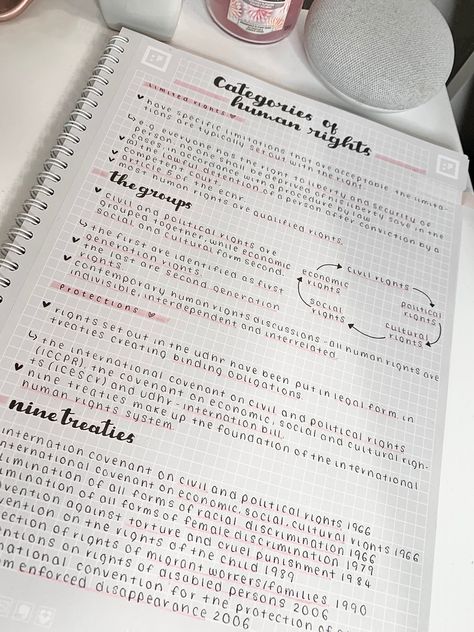 Categories of
human rights
limited rights ♥
♥ have specific limitations that are acceptable. the limita-
tions are typically set out with the right.
↳ e.g. everyone has the right to liberty and security of
person. no one shall be deprived of his liberty save in the
cases in accordance with a procedure by law.
lawful detention of a person after conviction by a
competent court.
article 5 of the echr.
♥ most human rights are qualified rights.
the groups
♥ civil and political rights are
grouped together, while economic
social and cultural form second.
↳ the first are identified as first
generation rights.
the last are second generation
rights.
♥ contemporary human rights discussions - all human rights are
indivisible, interdependent and interrelated.
economic
rights
civil rights
political
rights
cultural
rights
social
rights
protections ♥
♥ rights set out in the udhr have been put in legal form in
treaties creating binding obligations.
↳ the international covenant on civil and political rights
(ICCPR), the covenant on economic, social and cultural righ-
ts (ICESCR) and UDHR - internation bill.
♥ nine treaties make up the foundation of the international
human rights system
nine treaties
internation covenant on civil and political rights 1966
international covenant on economic, social, cultural rights 1966
limination of all forms of racial discrimination 1966
imination of all forms of female discrimination 1979
vention against torture and cruel punishment 1984
vention on the rights of the child 1989
ection of rights of migrant workers/families 1990
entions on rights of disabled persons 2006
national convention for the protection of
om enforced disappearance 2006